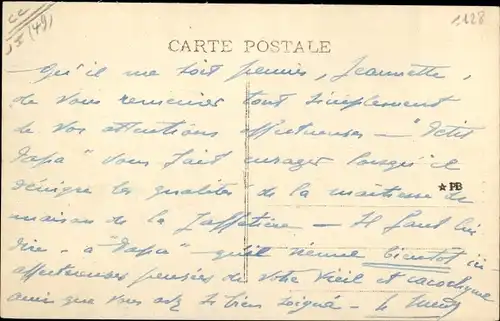 CC
I (49)
1128
CARTE POSTALE
Qu'il me soit permis, Jeannette,
de vous remercier tout simplement
de vos attentions affectueuses — "Petit
Papa" vous fait enrager lorsqu'il
dénigre les qualités de la maîtresse de
★PB
maison de la — Il faut lui
dire, à "Papa" qu'il vienne bientôt ici
affectueuses pensées de votre vieil et cacochyme
ami que vous avez si bien soigné — le